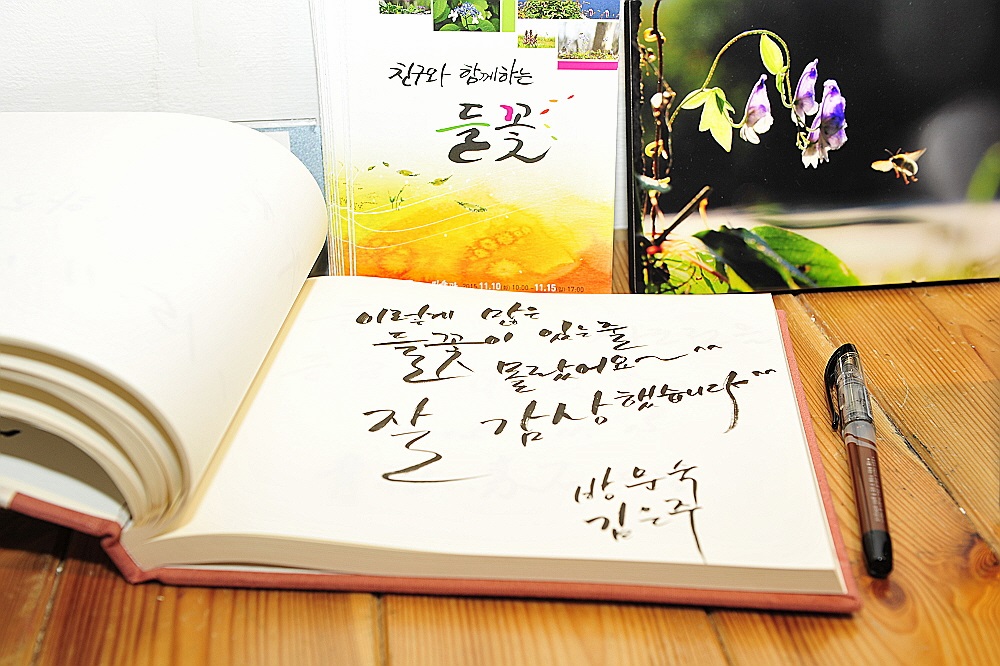 친구와 함께하는
들꽃
2015 11.10 (화) 10:00 ~ 11.15 (일) 17:00
이렇게 많은
들꽃이 있는줄
몰랐어요~^^
잘 감상했습니다^^
방우숙
김은주